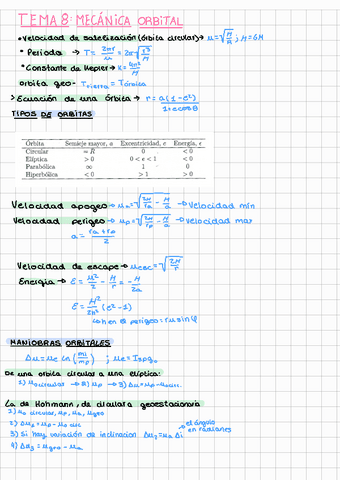 TEMA 8: MECÁNICA ORBITAL
• Velocidad de satelización (órbita circular) → u = √(μ/R) ; μ = GM
* Periodo → T = 2πr/u = 2π√(r³/μ)
* Constante de Kepler → K = 4π²/μ
orbita geo - Ttierra = Tórbita
> Ecuación de una órbita → r = a(1-e²)/(1+e cosθ)
TIPOS DE ORBITAS
Orbita Semieje mayor, a Excentricidad, e Energía, ε
Circular = R 0 < 0
Elíptica > 0 0 < e < 1 < 0
Parabólica ∞ 1 0
Hiperbólica < 0 > 1 > 0
Velocidad apogeo → ua = √(2μ/ra - μ/a) → velocidad mín
Velocidad perigeo → up = √(2μ/rp - μ/a) → velocidad max
a = (ra + rp)/2
Velocidad de escape → uesc = √(2μ/r)
Energía → ε = u²/2 - μ/r = -μ/2a
ε = μ²/2h² (e²-1)
↳ h en el perigeo = r u sin φ
MANIOBRAS ORBITALES
Δu = ue ln(mi/mf) ; ue = Isp g₀
De una orbita circular a una elíptica:
1) uo circular → 2) up → 3) Δu = up - uocirc
La de Hohmann, de circular a geoestacionaria
1) uo circular, up, ua, ugeo
2) Δu₁ = up - uo circ
3) Si hay variación de inclinacion Δu₂ = ua Δi → el ángulo en radianes
4) Δu₃ = ugeo - ua